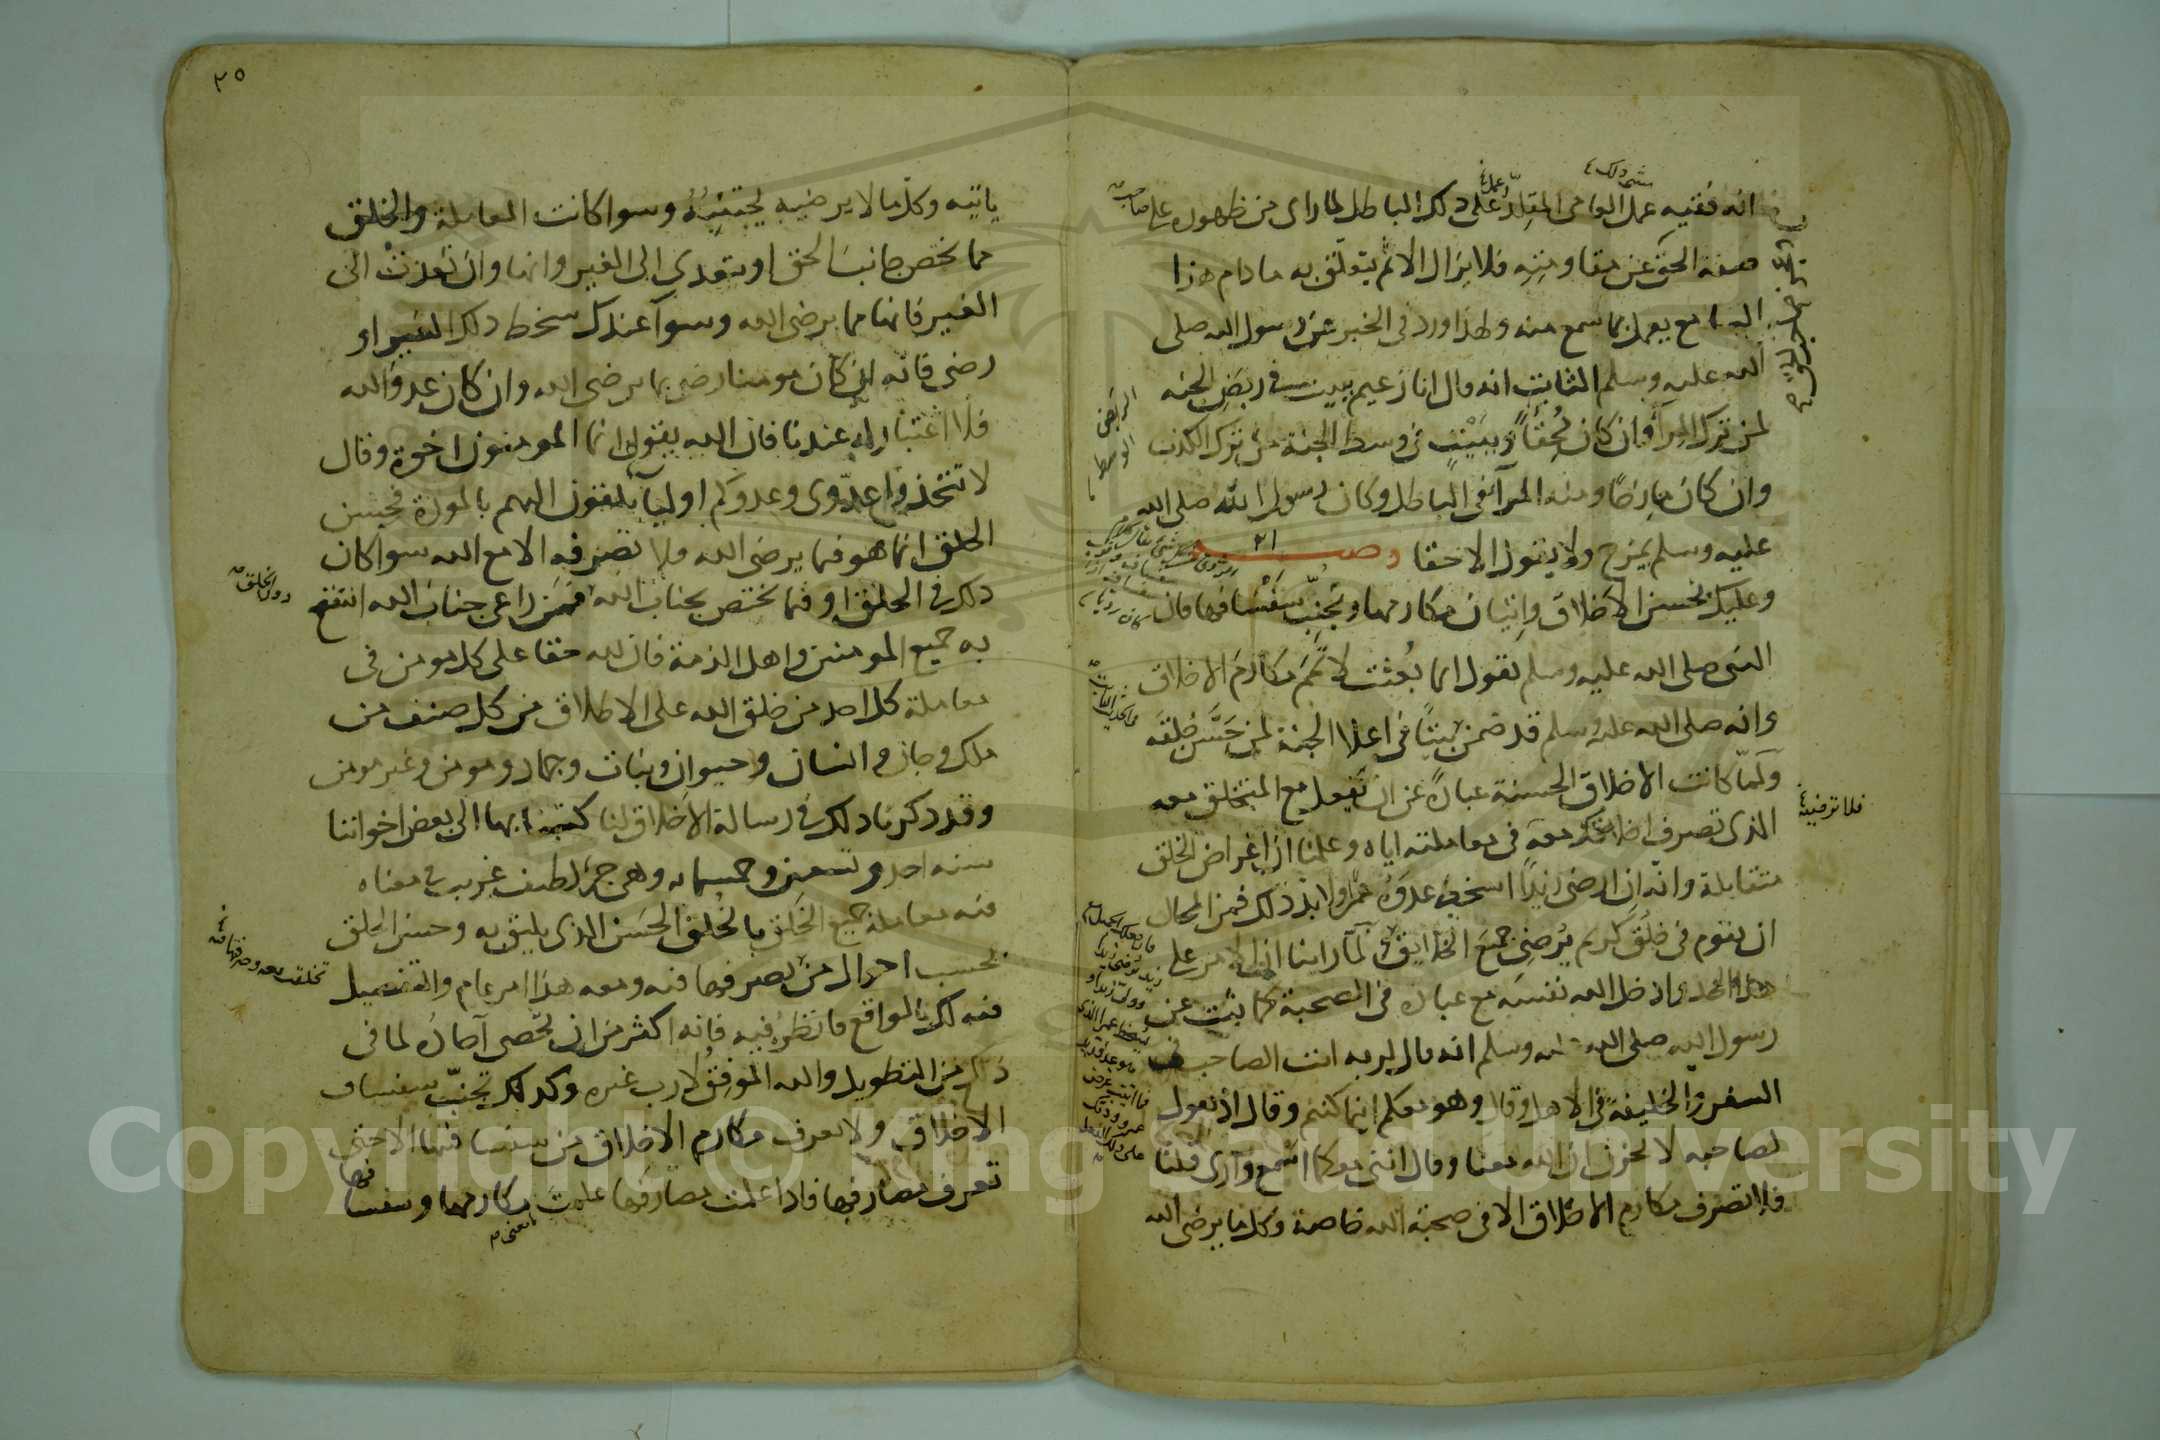 انه فقيه عمل العامي المقلد على ذلك الباطل لما راى من ظهوره على
صفة الحق عن مقاومته فلا يزال الاثم يتعلق به ما دام هذا
السامع يعمل بما سمع منه ولهذا ورد في الخبر عن رسول الله صلى
الله عليه وسلم الثابت انه قال انا زعيم ببيت في ربض الجنة
لمن ترك المرآ وان كان محقاً وببيت في وسط الجنة لمن ترك الكذب
وان كان مازحاً ومنه المرآ في الباطل وكان رسول الله صلى الله
عليه وسلم يمزح ولا يقول الا حقا وصـــية ٢١
وعليك بحسن الاخلاق واتيان مكارمها وتجنب سفسافها فان
النبي صلى الله عليه وسلم يقول انما بعثت لاتمم مكارم الاخلاق
وانه صلى الله عليه وسلم قد ضمن بيتاً في اعلا الجنة لمن حسّن خلقه
ولما كانت الاخلاق الحسنة عبارة عن ان تفعل مع المتخلق معه
الذي تصرف اخلاقك معه في معاملته اياه وعلمنا ان اغراض الخلق
متقابلة وانه ان ارضى زيداً اسخط عدوه عمراً ولا بد ذلك فمن المحال
ان يقوم في خلق كريم يرضي جميع الخلايق لما راينا ان الامر على
هذا الحد وادخل الله نفسه مع عباده في الصحبة كما ثبت عن
رسول الله صلى الله عليه وسلم انه قال لربه انت الصاحب في
السفر والخليفة في الاهل وقال وهو معكم اينما كنتم وقال اذ يقول
لصاحبه لا تحزن ان الله معنا وقال انني معكما اسمع وارى قلنا
فلا تصرف مكارم الاخلاق الا في صحبة الله خاصة وكل ما يرضي الله
فلا ترضيه
٢٥
ياتيه وكل ما لا يرضيه يجتنبه وسوا كانت المعاملة والخلق
مما يخص جانب الحق او يتعدى الى الغير وانها وان تعدت الى
الغير فانها مما يرضي الله وسوآ عندك سخط ذلك الغير او
رضي فانه ان كان مومنا رضي بما يرضي الله وان كان عدو الله
فلا اعتبار له عندنا فان الله يقول انما المومنون اخوة وقال
لا تتخذوا عدوي وعدوكم اوليآ تلقون اليهم بالمودة فحسن
الخلق انما هو فيما يرضي الله فلا تصرفه الا مع الله سوا كان
ذلك في الخلق او فيما يختص بجناب الله فمن راعى جناب الله انتفع
به جميع المومنين واهل الذمة فان لله حقا على كل مومن في
معاملة كل احد من خلق الله على الاطلاق من كل صنف من
ملك وجان وانسان وحيوان ونبات وجماد ومومن وغير مومن
وقد ذكرنا ذلك في رسالة الاخلاق لنا كتبنا بها الى بعض اخواننا
سنه احدى وتسعين وخمسمايه وهي جزء لطيف غريب في معناه
فيه معاملة جميع الخلق بالخلق الحسن الذي يليق به وحسن الخلق
بحسب احوال من تصرفها فيه ومعه هذا امر عام والتفصيل
فيه لك بالمواقع فانظر فيه فانه اكثر من ان تحصى آحاده لما في
ذلك من التطويل والله الموفق لا رب غيره وكذلك تجنب سفساف
الاخلاق ولا تعرف مكارم الاخلاق من سفسافها الا حتى
تعرف مصارفها فاذا علمت مصارفها علمت مكارمها وسفسافها
Copyright © King Saud University